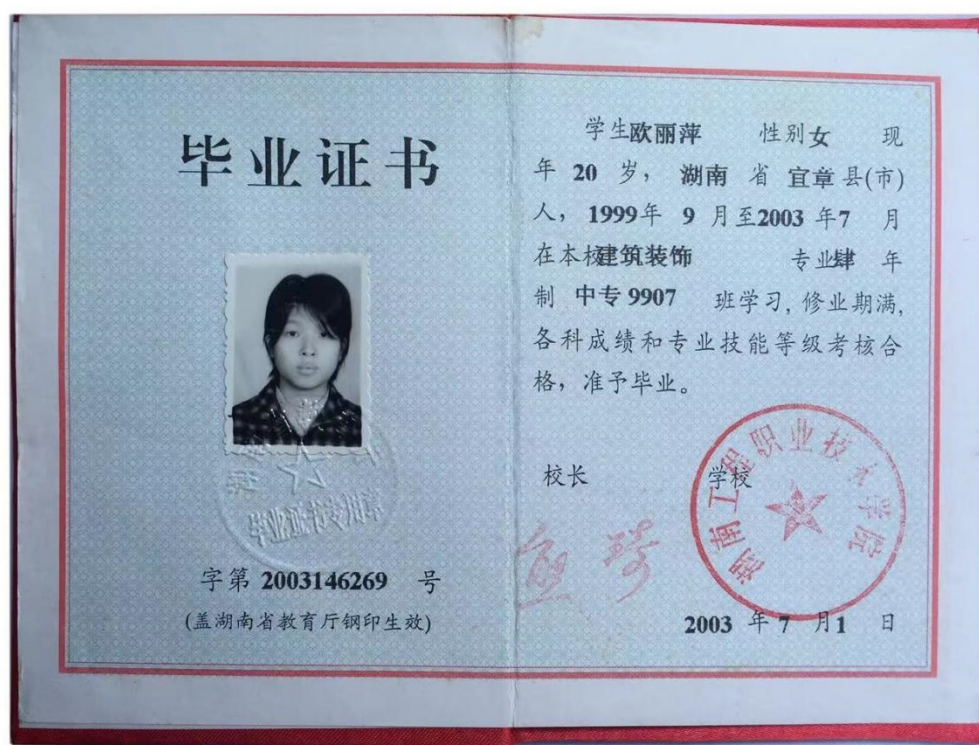 毕业证书
毕业证书专用章
字第 2003146269 号
(盖湖南省教育厅钢印生效)
学生欧丽萍 性别女 现
年 20 岁, 湖南 省 宜章县(市)
人, 1999年 9 月至2003 年7 月
在本校建筑装饰 专业肆 年
制 中专 9907 班学习, 修业期满,
各科成绩和专业技能等级考核合
格, 准予毕业。
校长 学校
湖南工程职业技术学院
2003 年 7 月1 日